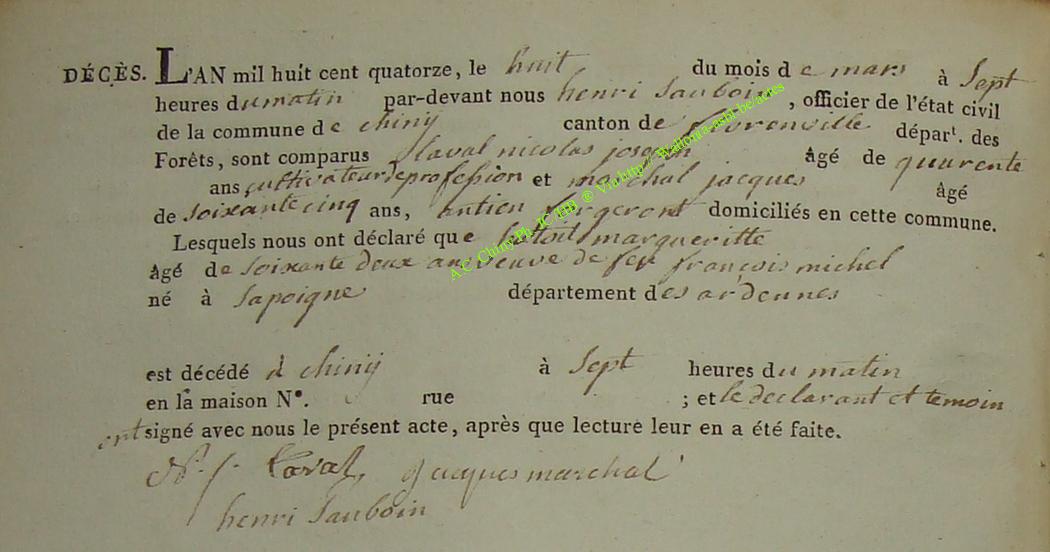 DÉCÈS. L'AN mil huit cent quatorze, le huit du mois de mars à Sept
heures du matin par-devant nous henri Sauboin, officier de l'état civil
de la commune de chiny canton de florenville départ. des
Forêts, sont comparus Slaval nicolas joseph âgé de quarente
ans cultivateur de profession et marchal jacques âgé
de soixante cinq ans, antien forgeront domiciliés en cette commune.
Lesquels nous ont déclaré que margueritte
âgé de soixante deux an veuve de feu françois michel
né à Sapoigne département des ardennes
est décédé à chiny à Sept heures du matin
en la maison N°. rue ; et le declarant et temoin
ont signé avec nous le présent acte, après que lecture leur en a été faite.
N. j. Laval jacques marchal
henri Sauboin
A.C. Chiny Ph. JC HB ® Via http://Wallonia-asbl-be/actes